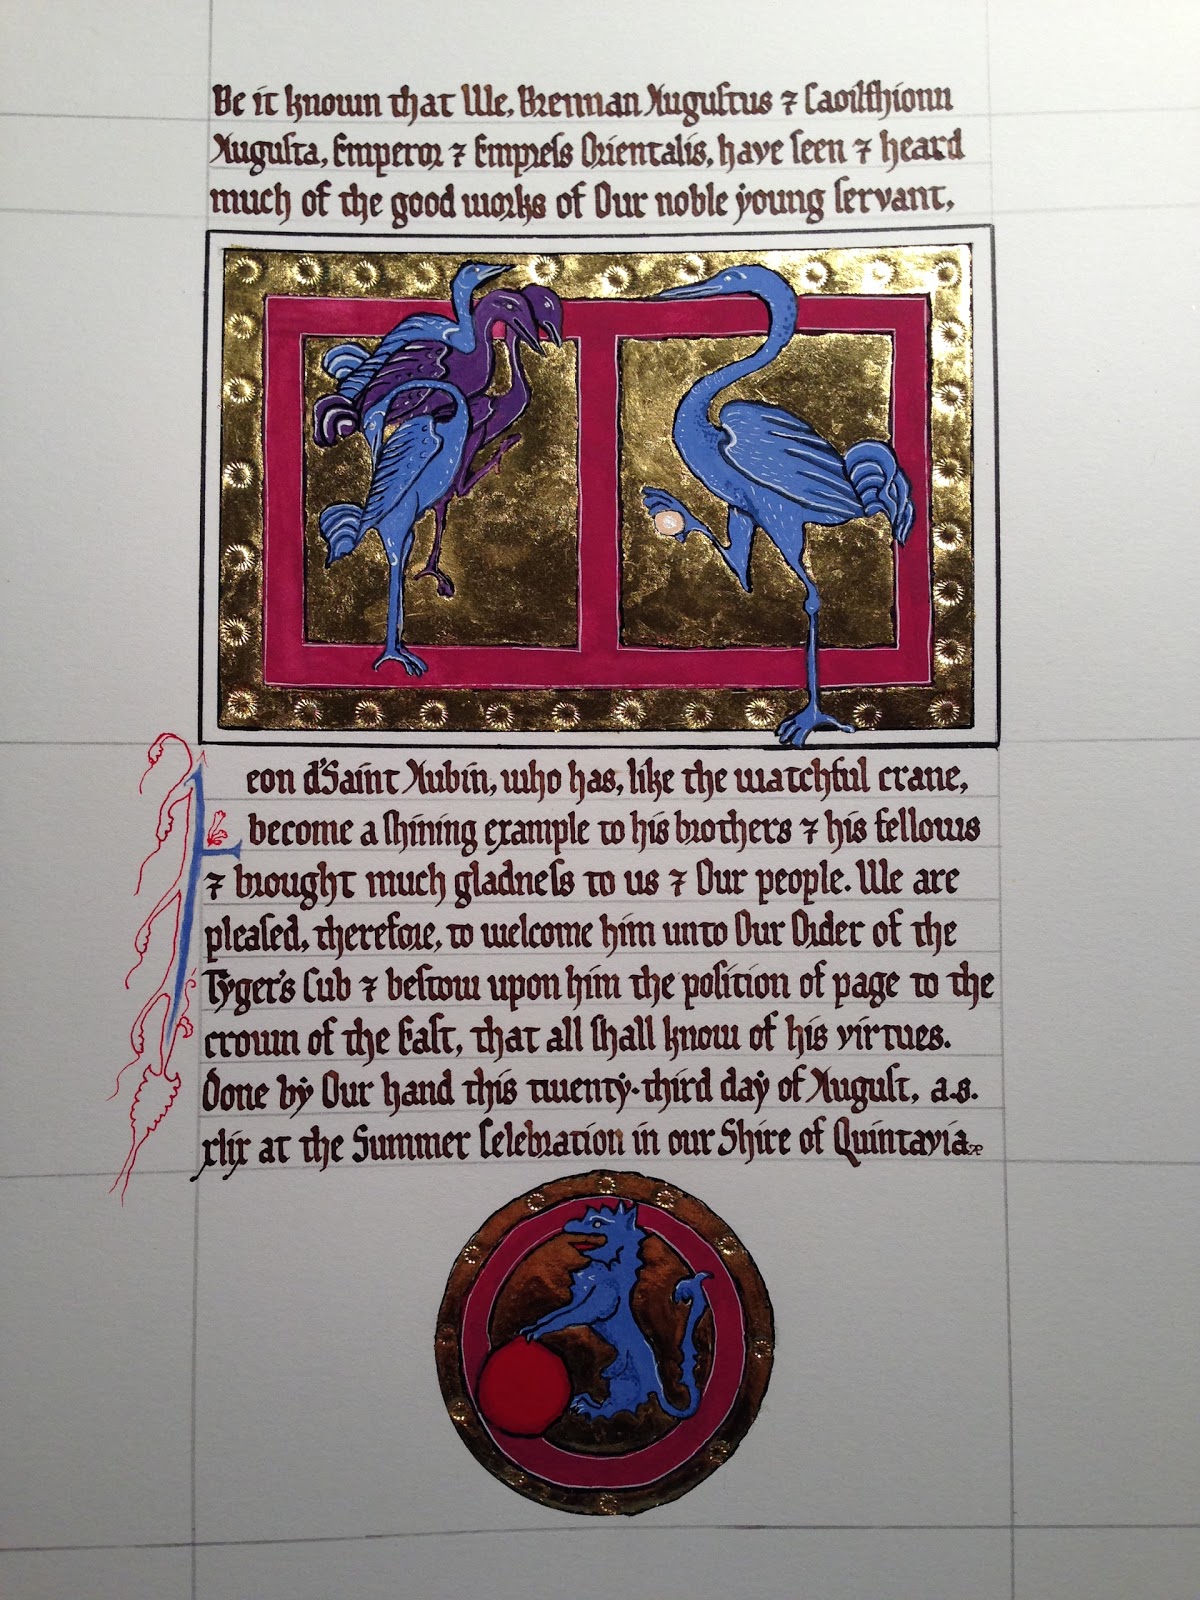 Be it known that We, Brennan Auguſtus ⁊ Caoilfhionn
Auguſta, Emperor ⁊ Empreſs Orientalis, have ſeen ⁊ heard
much of the good works of Our noble young ſervant,
Leon d'Saint Aubin, who has, like the watchful crane,
become a ſhining example to his brothers ⁊ his fellows
⁊ brought much gladneſs to us ⁊ Our people. We are
pleaſed, therefore, to welcome him unto Our Order of the
Tyger's Cub ⁊ beſtow upon him the poſition of page to the
crown of the Eaſt, that all ſhall know of his virtues.
Done by Our hand this twenty-third day of Auguſt, a.s.
xlix at the Summer Celebration in our Shire of Quintavia